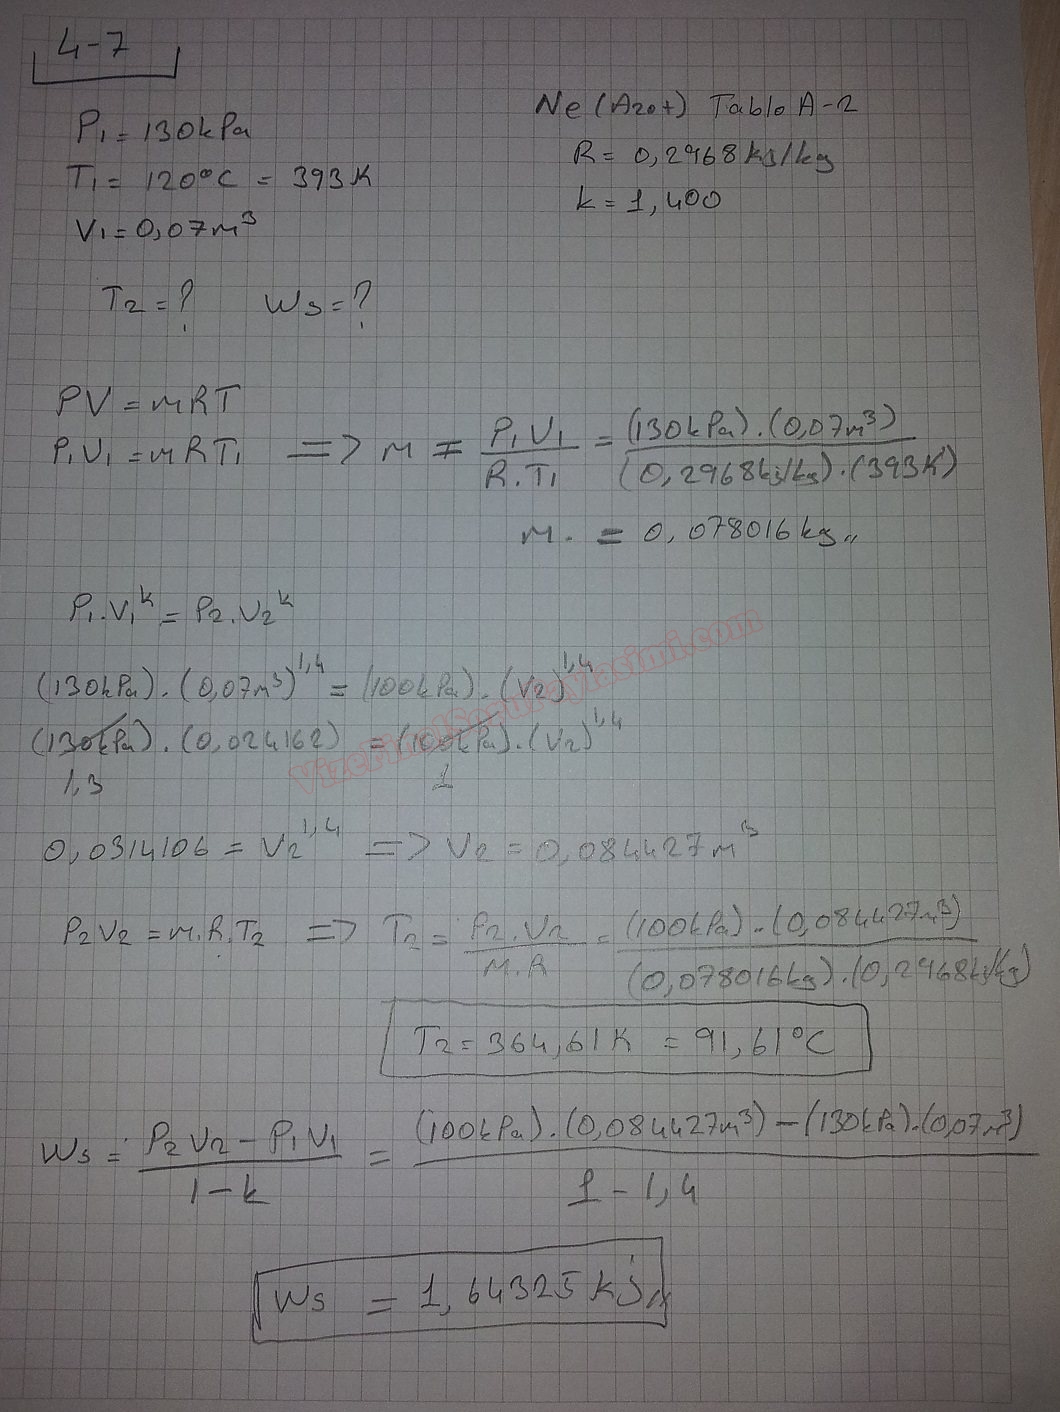 4-7
P₁ = 130kPa
T₁ = 120°C = 393K
V₁ = 0,07m³
Ne (Azot) Tablo A-2
R = 0,2968 kj/kg
k = 1,400
T₂ = ? Ws = ?
PV = mRT
P₁V₁ = mRT₁ => m = P₁V₁ / R.T₁ = (130kPa).(0,07m³) / (0,2968kj/kg).(393K)
m. = 0,078016kg,,
P₁.V₁ᵏ = P₂.V₂ᵏ
(130kPa).(0,07m³)^1,4 = (100kPa).(V₂)^1,4
(130kPa).(0,024162) = (100kPa).(V₂)^1,4
1,3 1
0,0314106 = V₂^1,4 => V₂ = 0,084427m³
P₂V₂ = m.R.T₂ => T₂ = P₂.V₂ / M.R = (100kPa).(0,084427m³) / (0,078016kg).(0,2968kj/kg)
T₂ = 364,61K = 91,61°C
Ws = P₂V₂ - P₁V₁ / 1-k = (100kPa).(0,084427m³) - (130kPa).(0,07m³) / 1-1,4
Ws = 1,64325 kj,,
VizeFinalSorulariYardimi.com